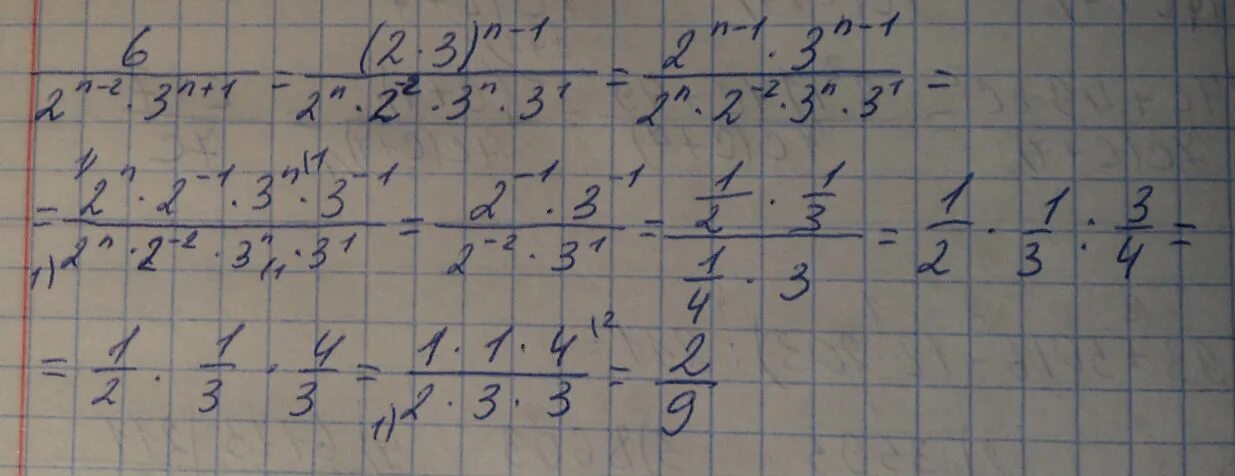 6/(2^(n-2) · 3^(n+1)) = (2 · 3)^(n-1)/(2^n · 2^(-2) · 3^n · 3^1) = (2^(n-1) · 3^(n-1))/(2^n · 2^(-2) · 3^n · 3^1) =
= (2^n · 2^(-1) · 3^n · 3^(-1))/(2^n · 2^(-2) · 3^n · 3^1) = (2^(-1) · 3^(-1))/(2^(-2) · 3^1) = (1/2 · 1/3)/(1/4 · 3) = 1/2 · 1/3 : 3/4 =
= 1/2 · 1/3 · 4/3 = (1 · 1 · 4)/(2 · 3 · 3) = 2/9